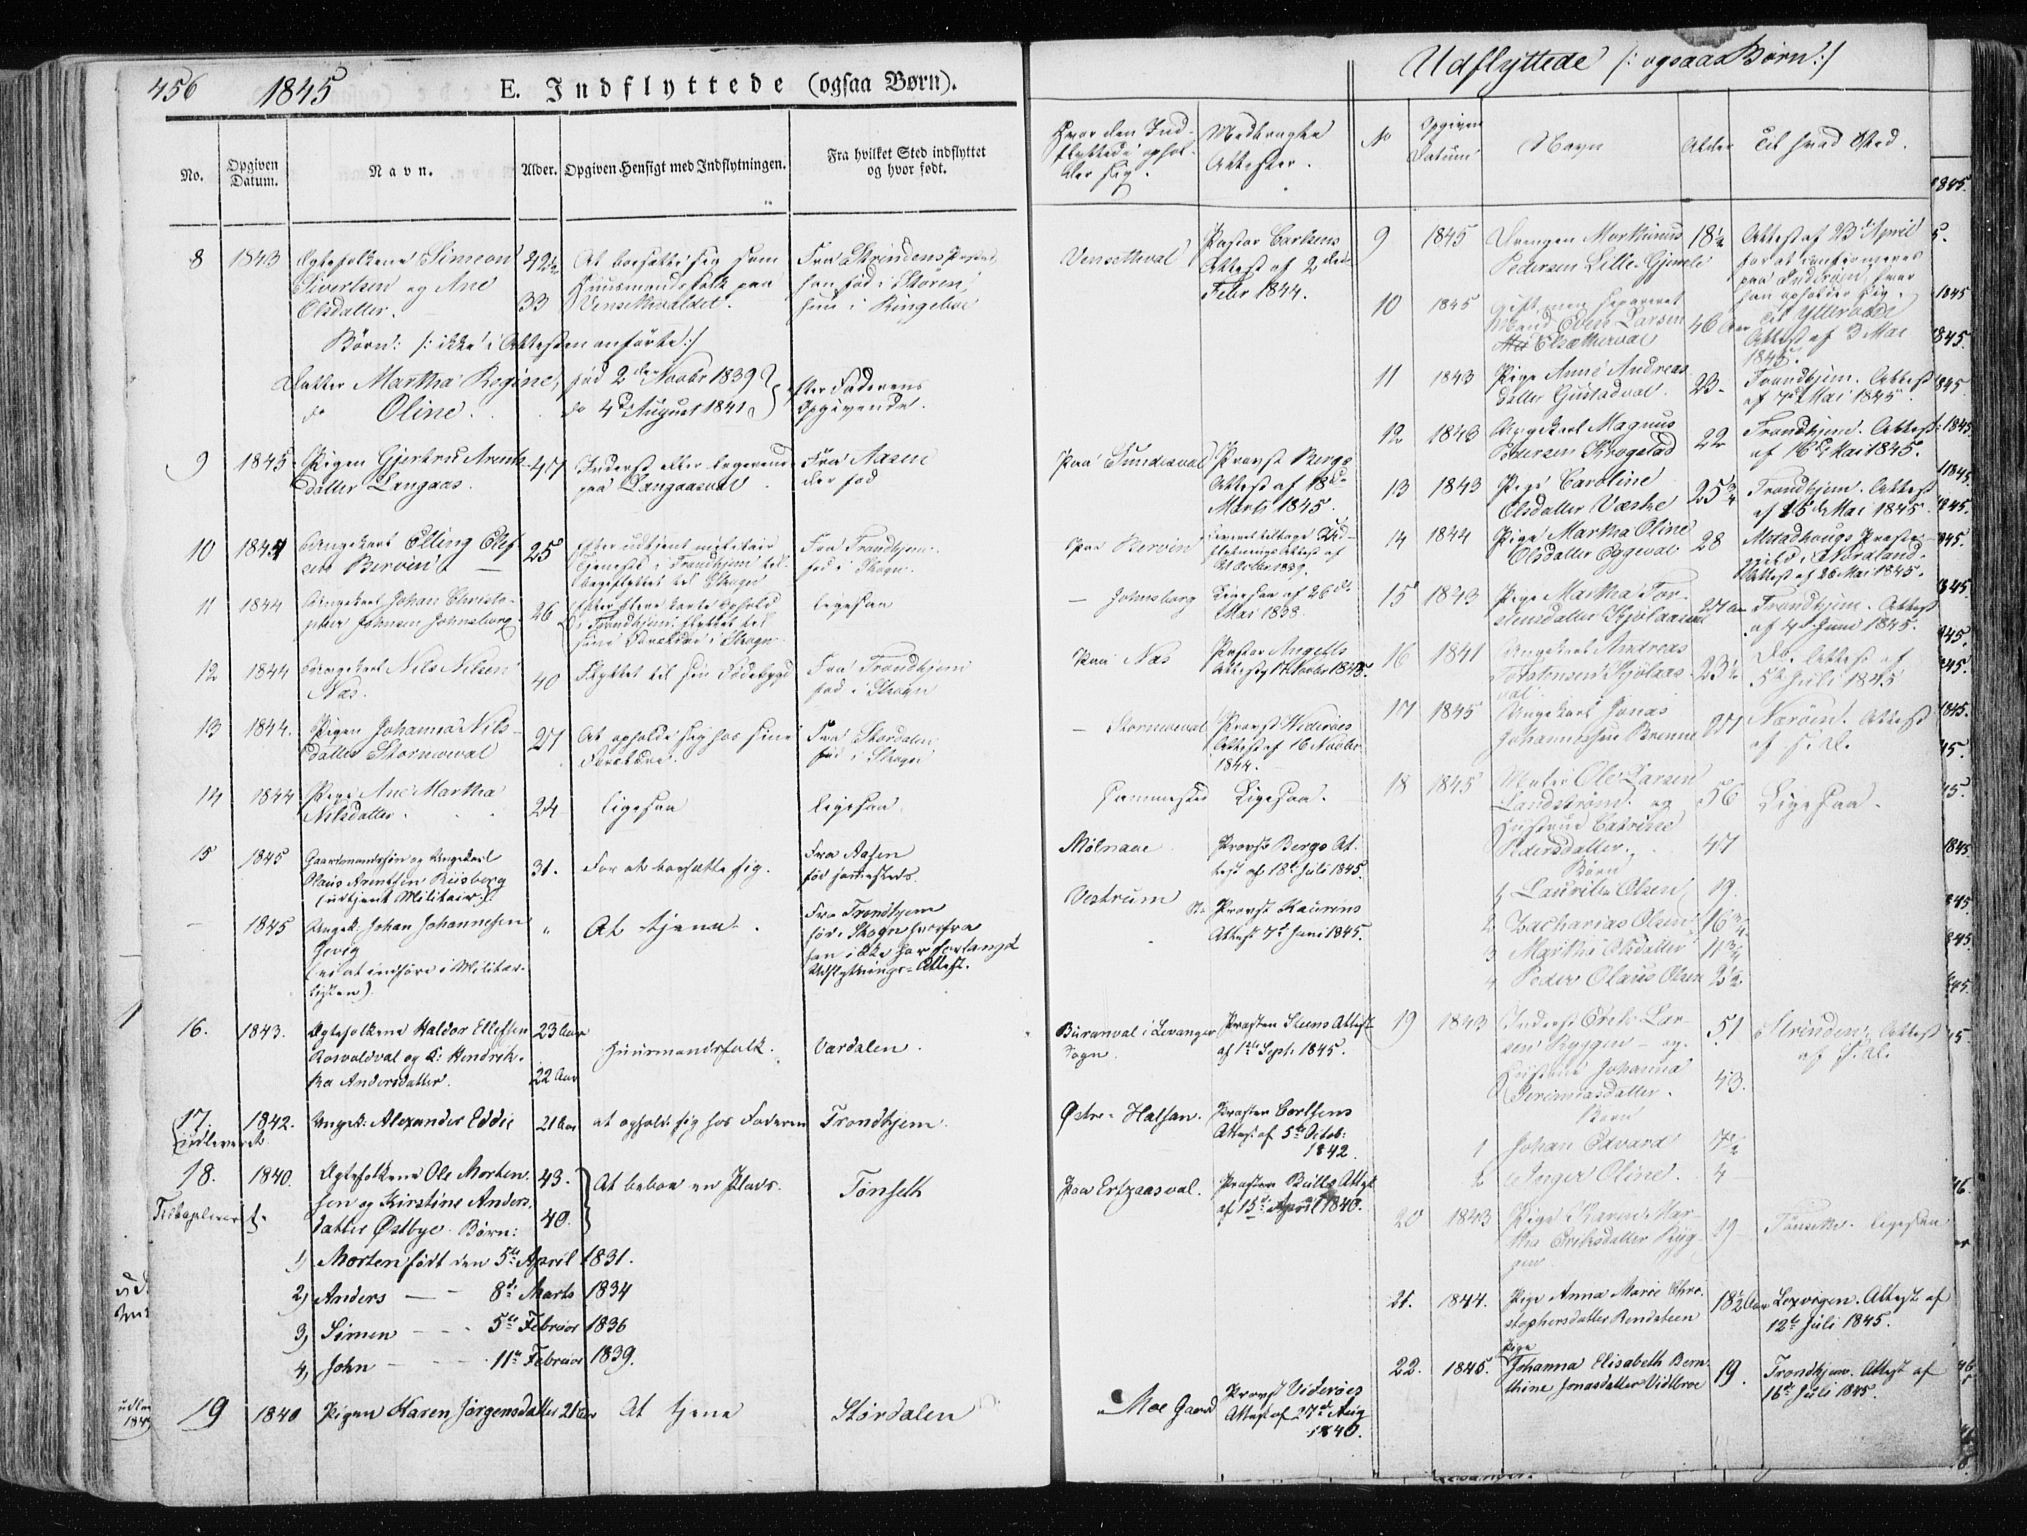 456 1845 E. Indflyttede (ogsaa Børn).
No.
Opgiven
Datum.
Navn.
Alder.
Opgiven Hensigt med Indflytningen.
Fra hvilket Sted indflyttet
og hvor født.
Hvor den Ind-
flyttede ophol-
der sig.
Medbragte
Attester.
8 1843 Ægtefolkene Simeon
Sivertsen og Ane
Olsdatter.
42½
33
At bosætte sig som
Huusmandsfolk paa
Fra Strindens
han fød i Støren,
hun i Ringeboe
Pastor Carlsens
Attest af 2den
Febr 1844.
Børn: /: ikke i Attesten anførte :/
Datter Martha Regine, fød 2den Novbr 1839
do Oline. do 4de August 1841
efter Faderens
Opgivende.
9 1845 Pigen Gjertru Arents-
datter Langaas.
47
Inderst eller logerende
paa Langaasval
Fra Aasen
der fød
Paa Sundaval
Provst Bergs
Attest af 18de
Marts 1845.
10 1844 Ungekarl Elling Elef-
sen Bervin
25
Efter udtjent militair
Tjeneste i Trondhjem til-
bageflyttet til Skogn
Fra Trondhjem
fød i Skogn.
Paa Bervin
11 1844 Ungekarl Johan Christo-
pher Johnsen Johnsborg
26
ligesaa
— Johnsborg
Ligesaa af 26de
Mai 1838
12 1844 Ungekarl Nils Nilsen
Næs.
40
Flyttet til sin Fødebygd
Fra Trondhjem
fød i Skogn
Paa Næs
Pastor Angells
13 1844. Pigen Johanna Nils-
datter Stormoval
27
At opholde sig hos sine
Forældre.
Fra Stordalen,
fød i Skogn
— Stormoval
Provst Widerøes
Attest af 16 Novbr
1844.
14 1844 Pige Ane Martha
Nilsdatter.
24
ligesaa
ligesaa
sammested Ligesaa.
15 1845 Gaardmandssøn og Ungekarl
Olaus Arentsen Riisberg
(udtjent Militair)
31.
For at bosætte sig.
Fra Aasen
fød sammesteds.
Mølnaae
Provst Bergs At-
test af 18de Juli 1845.
— 1845 Ungek. Johan Johannesen
Gevig
(vil at indføre i Militær-
listen)
"
At tjene.
Fra Trondhjem
fød i Skogn hvorfra
han ikke har forlangt
Udflytnings-Attest.
Vestrum
Provst Kaurins
Attest 7de Juni 1845.
16. 1843. Ægtefolkene Haldor Ellefsen
Rosvoldval og K: Hendrik-
ka Andersdatter.
23 Aar
22 Aar
Huusmandsfolk.
Værdalen.
Buranval i Levanger
Sogn.
Præsten Steens Attest
af 1ste Septr 1845.
17. 1842. Ungek. Alexander Eddie 21 Aar at opholde sig hos Faderen Trondhjem.
Østre Halsan.
Præsten Carlsens
Attest af 5te Octob:
1842.
18. 1840. Ægtefolkene Ole Morten-
sen og Kirstine Anders-
datter Østbye. Børn:
43.
40.
At beboe en Plads.
Tønseth
Paa Ertzaasval.
Præsten Bulls Attest
af 15de April 1840.
1) Morten født den 5te April 1831.
2) Anders — 8de Marts 1834
3) Simen — 5te Februar 1836
4) John — 11te Februar 1839.
19 1840 Pigen Karen Jørgensdatter 21 Aar At tjene Størdalen
Moe Gaard
Provst Viderøes
Attest af 27de Aug
1840.
Udflyttede /: ogsaa Børn :/
No
Opgiven
Datum
Navn
Alder
Til hvad Sted.
9 1845 Drengen Marthinus
Pedersen Lille-Gjemle
18½
Attest af 23de April
for at confirmeres
paa Inderøen, hvor
han opholder sig.
10 1845 gift, men separeret
Mand Even Larsen
46 Aar
Til Ytterøe
Attest af 3 Mai
1845.
11 1843 Pige Anne Andreas-
datter Gustadval.
23
Trondhjem. Attest
af 7de Mai 1845.
12 1843 Ungekarl Magnus
Pedersen Krogstad
22
Trondhjem. Attest
af 16de Mai 1845.
13 1843 Pige Caroline
Olsdatter Væske
25¾
Trondhjem. Attest
af 25de Mai 1845
14 1844 Pige Martha Oline
Olsdatter Rygeval
28
Stadsbygds Præste-
Attest af 26 Mai 1845.
15 1843 Pige Martha Tor-
stensdatter Kjølaasval
27 Aar
Trondhjem. Attest
af 4de Juni 1845.
16 1841 Ungekarl Andreas
Torstensen Kjølaas-
val
23½
Do. Attest af
5te Juli 1845
17 1845 Ungekarl Jonas
Johannesen Brenne
27
Nærøen. Attest
af s. D.
18 1845 Maler Ole Larsen
Landstrøm og
Hustrue Cathrine
Pedersdatter.
56
47
Ligesaa.
Børn
1 Laurits Olsen 19.
2 Zacharias Olsen 16¾
3 Martha Olsdatter 11¾
4 Peder Olaus Olsen 2½
19 1843 Inderst Erik Lar-
sen Ryggen — og
Hustrue Johanna
Jeremiasdatter.
51
43.
Strinden, Attest
af s. D.
Børn
1 Johan Edvard 7½
2 Inger Oline. 4
20 1843 Pige Karen Mar-
tha Eriksdatter Ryg-
gen
19
ligesaa
21. 1844. Pige Anna Marie Chri-
stophersdatter Rendsteen
18½ Aar
Lexvigen. Attest af
12te Juli 1845.
22. 1845. Pige
Johanna Elisabeth Bern-
thine Jonasdatter Vidleroe
19.
Trondhjem. Attest af
16de Juli 1845